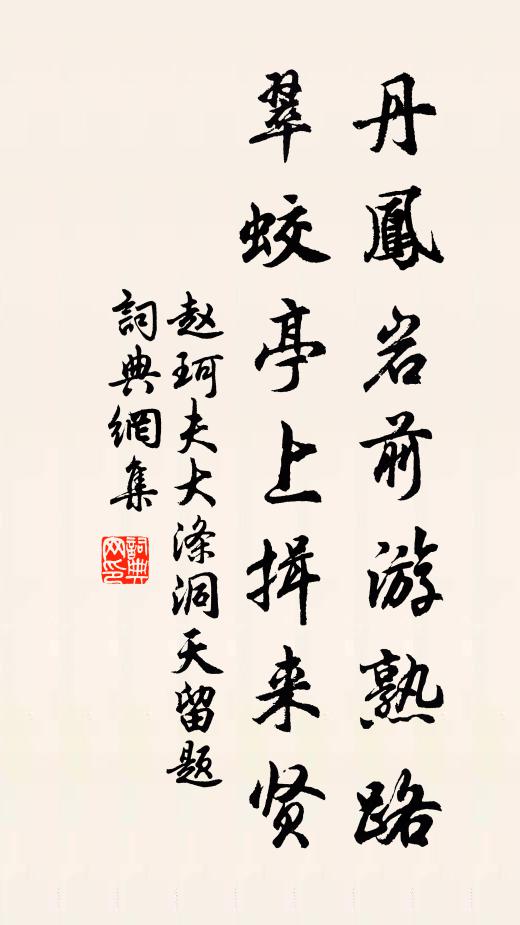 丹鳳岩前游熟路
翠蛟亭上揖来贤
赵珂夫大涤洞天留题
詞典網集
詞典网印